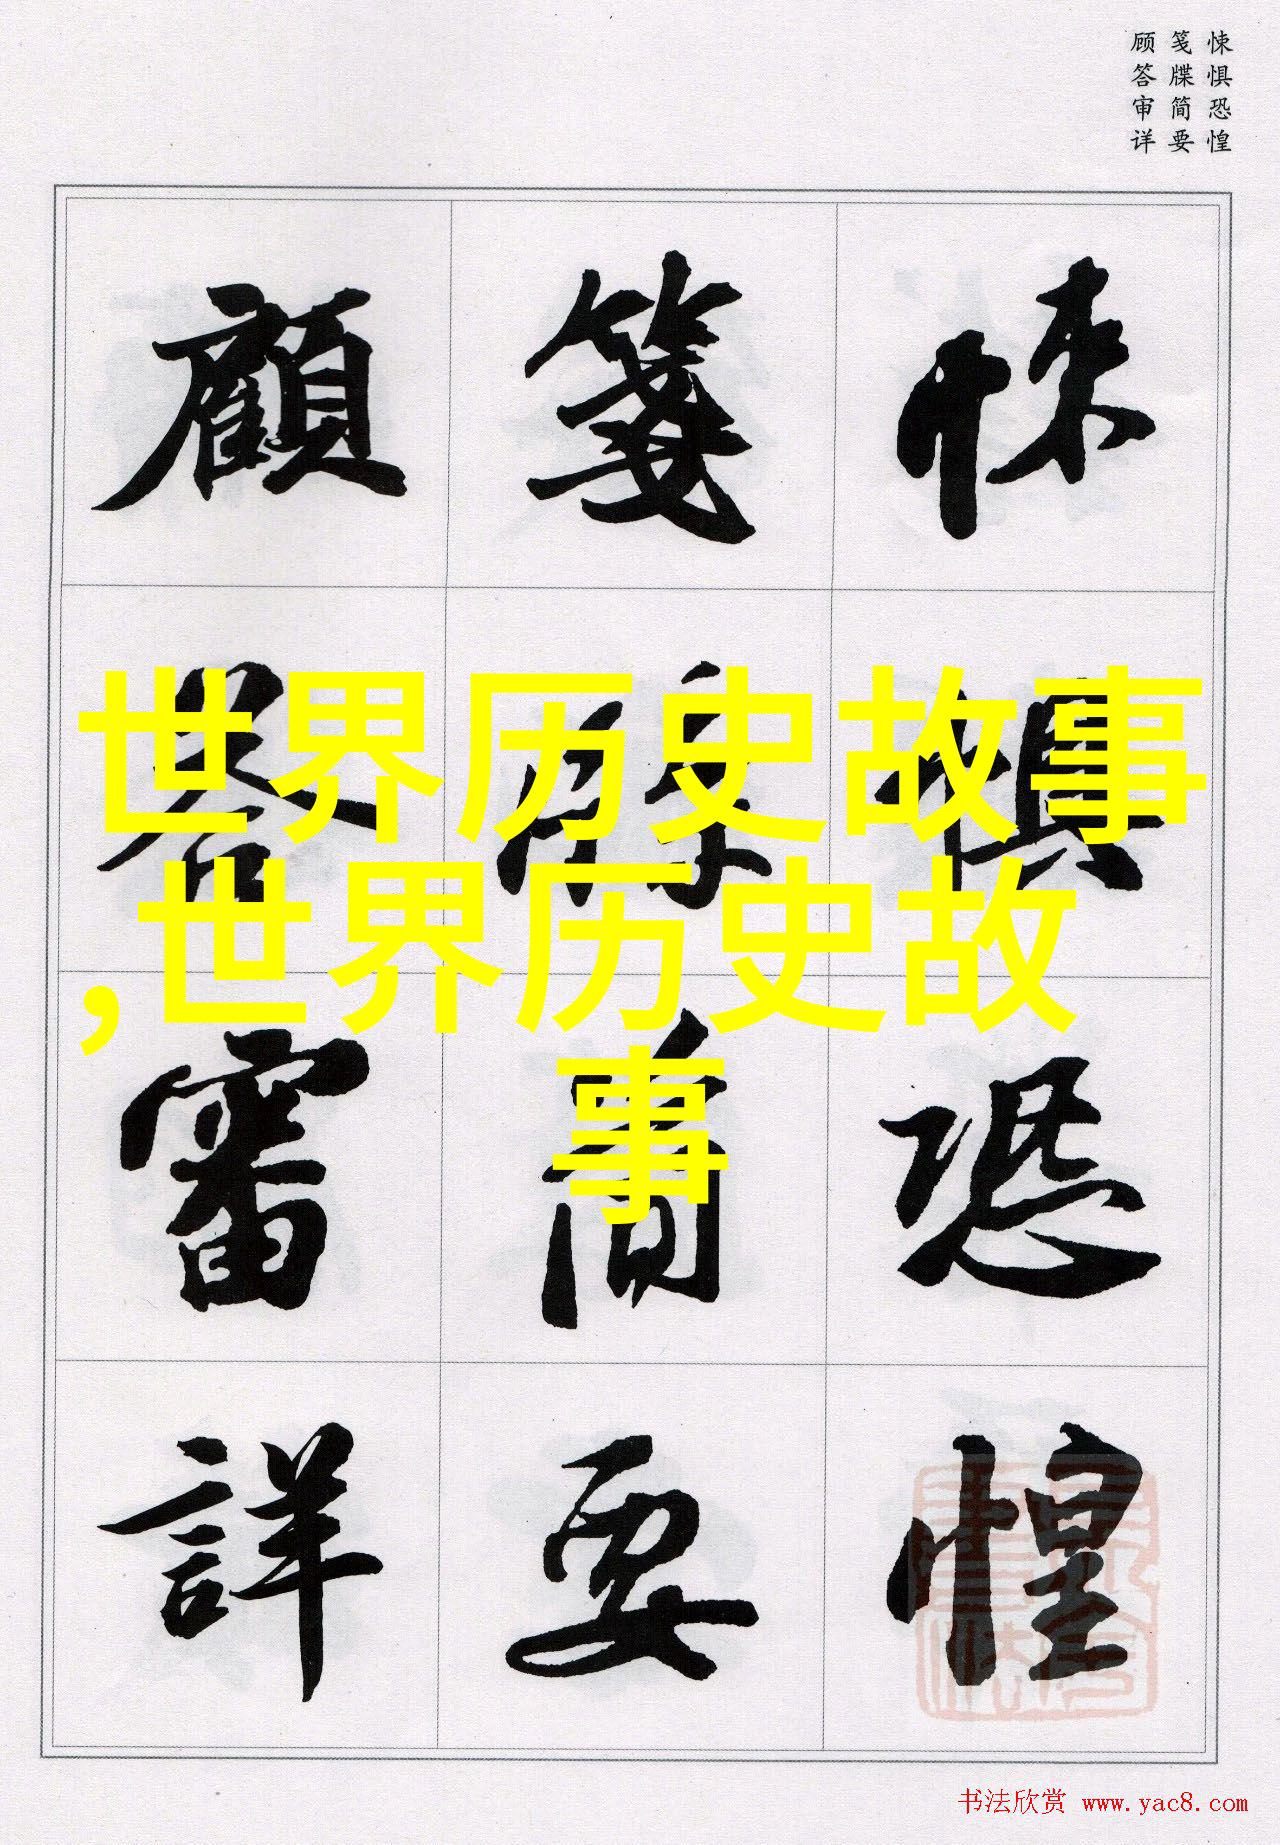 悚惧恐惶
笺牒简要
顾答审详
悚惧恐惶
笺牒简要
顧答審詳
世界历史故事
,世界历史故
事
书法欣赏 www.yac8.com